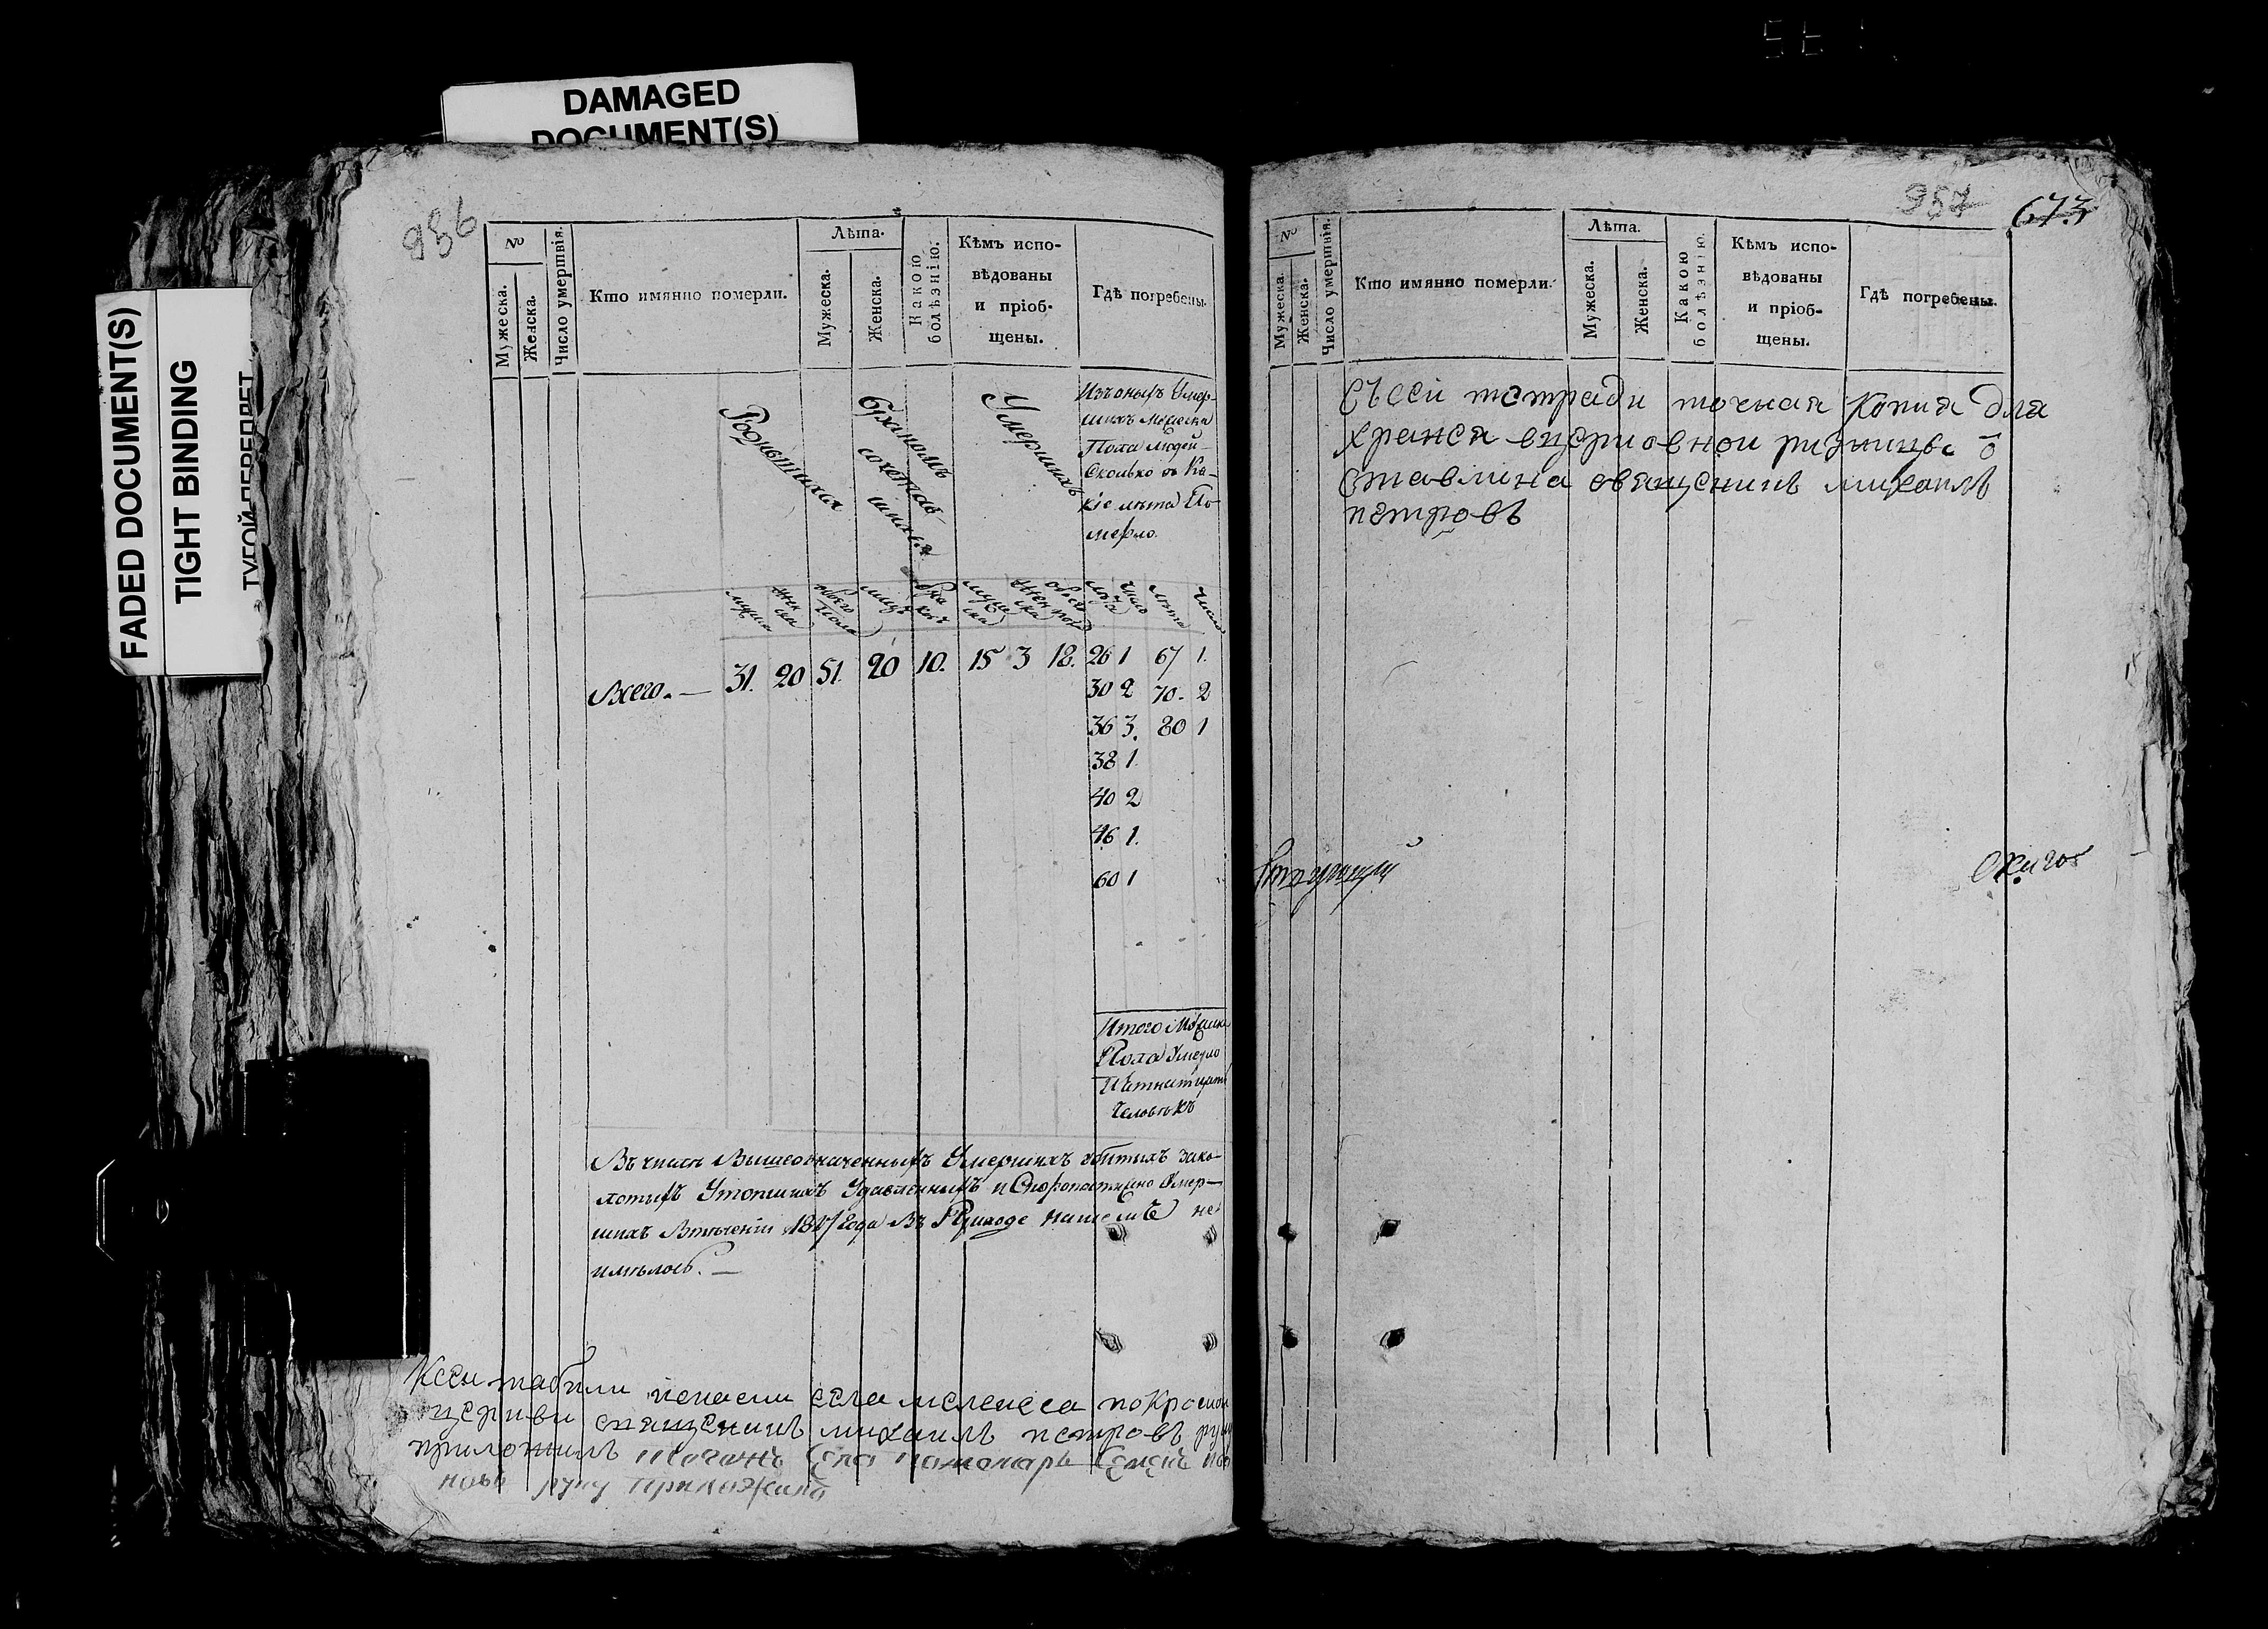 DAMAGED
DOCUMENT(S)
FADED DOCUMENT(S)
TIGHT BINDING
ТУГОЙ ПЕРЕПЛЕТ
936
№
Мужеска.
Женска.
Число умершвія.
Кто имянно померли.
Лѣта.
Мужеска.
Женска.
Какою
болѣзнію.
Кѣмъ испо-
вѣдованы
и пріоб-
щены.
Гдѣ погребены.
Родившихся
бракомъ
сочетав
шихся
Умершихъ
Изъ оныхъ Умер-
шихъ Мужеска
Пола людей
Сколько въ Ка-
кіе лѣта По
мерло.
Всего. — 31. 20 51. 20 10. 15 3 18. 26 1 67 1.
30 2 70. 2
36 3. 80 1
38 1.
40 2
46 1.
60 1
Итого Мужеска
Пола Умерло
Пятнатцать
Человѣкъ
Въ числѣ Вышеозначенныхъ Умершихъ убитыхъ зако-
лотыхъ Утопшихъ Удавленныхъ и Скоропостижно Умер-
шихъ Втеченіи года Въ Приходе нашемъ не
имѣлось. —
Ксеи табели села покровской
церкви священникъ михаилъ петровъ руку
приложилъ Села пономарь Семенъ
руку приложилъ
957
673
№
Мужеска.
Женска.
Число умершвія.
Кто имянно померли.
Лѣта.
Мужеска.
Женска.
Какою
болѣзнію.
Кѣмъ испо-
вѣдованы
и пріоб-
щены.
Гдѣ погребены.
Съсеи тетради точная копия для
вцерковной ризнице о
ставлина священникъ михаилъ
петровъ